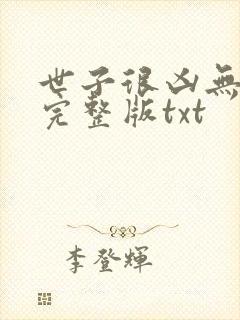 世子很凶無
完整版txt
李登輝